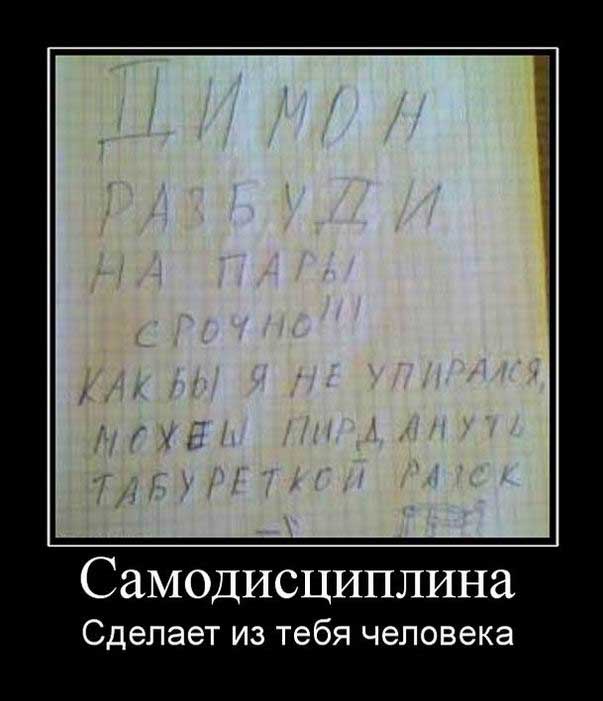 ДИМОН
РАЗБУДИ
НА ПАРЫ
СРОЧНО!!!
КАК БЫ Я НЕ УПИРАЛСЯ,
МОЖЕШ ПИРДАНУТЬ
ТАБУРЕТКОЙ РАЗОК
Самодисциплина
Сделает из тебя человека